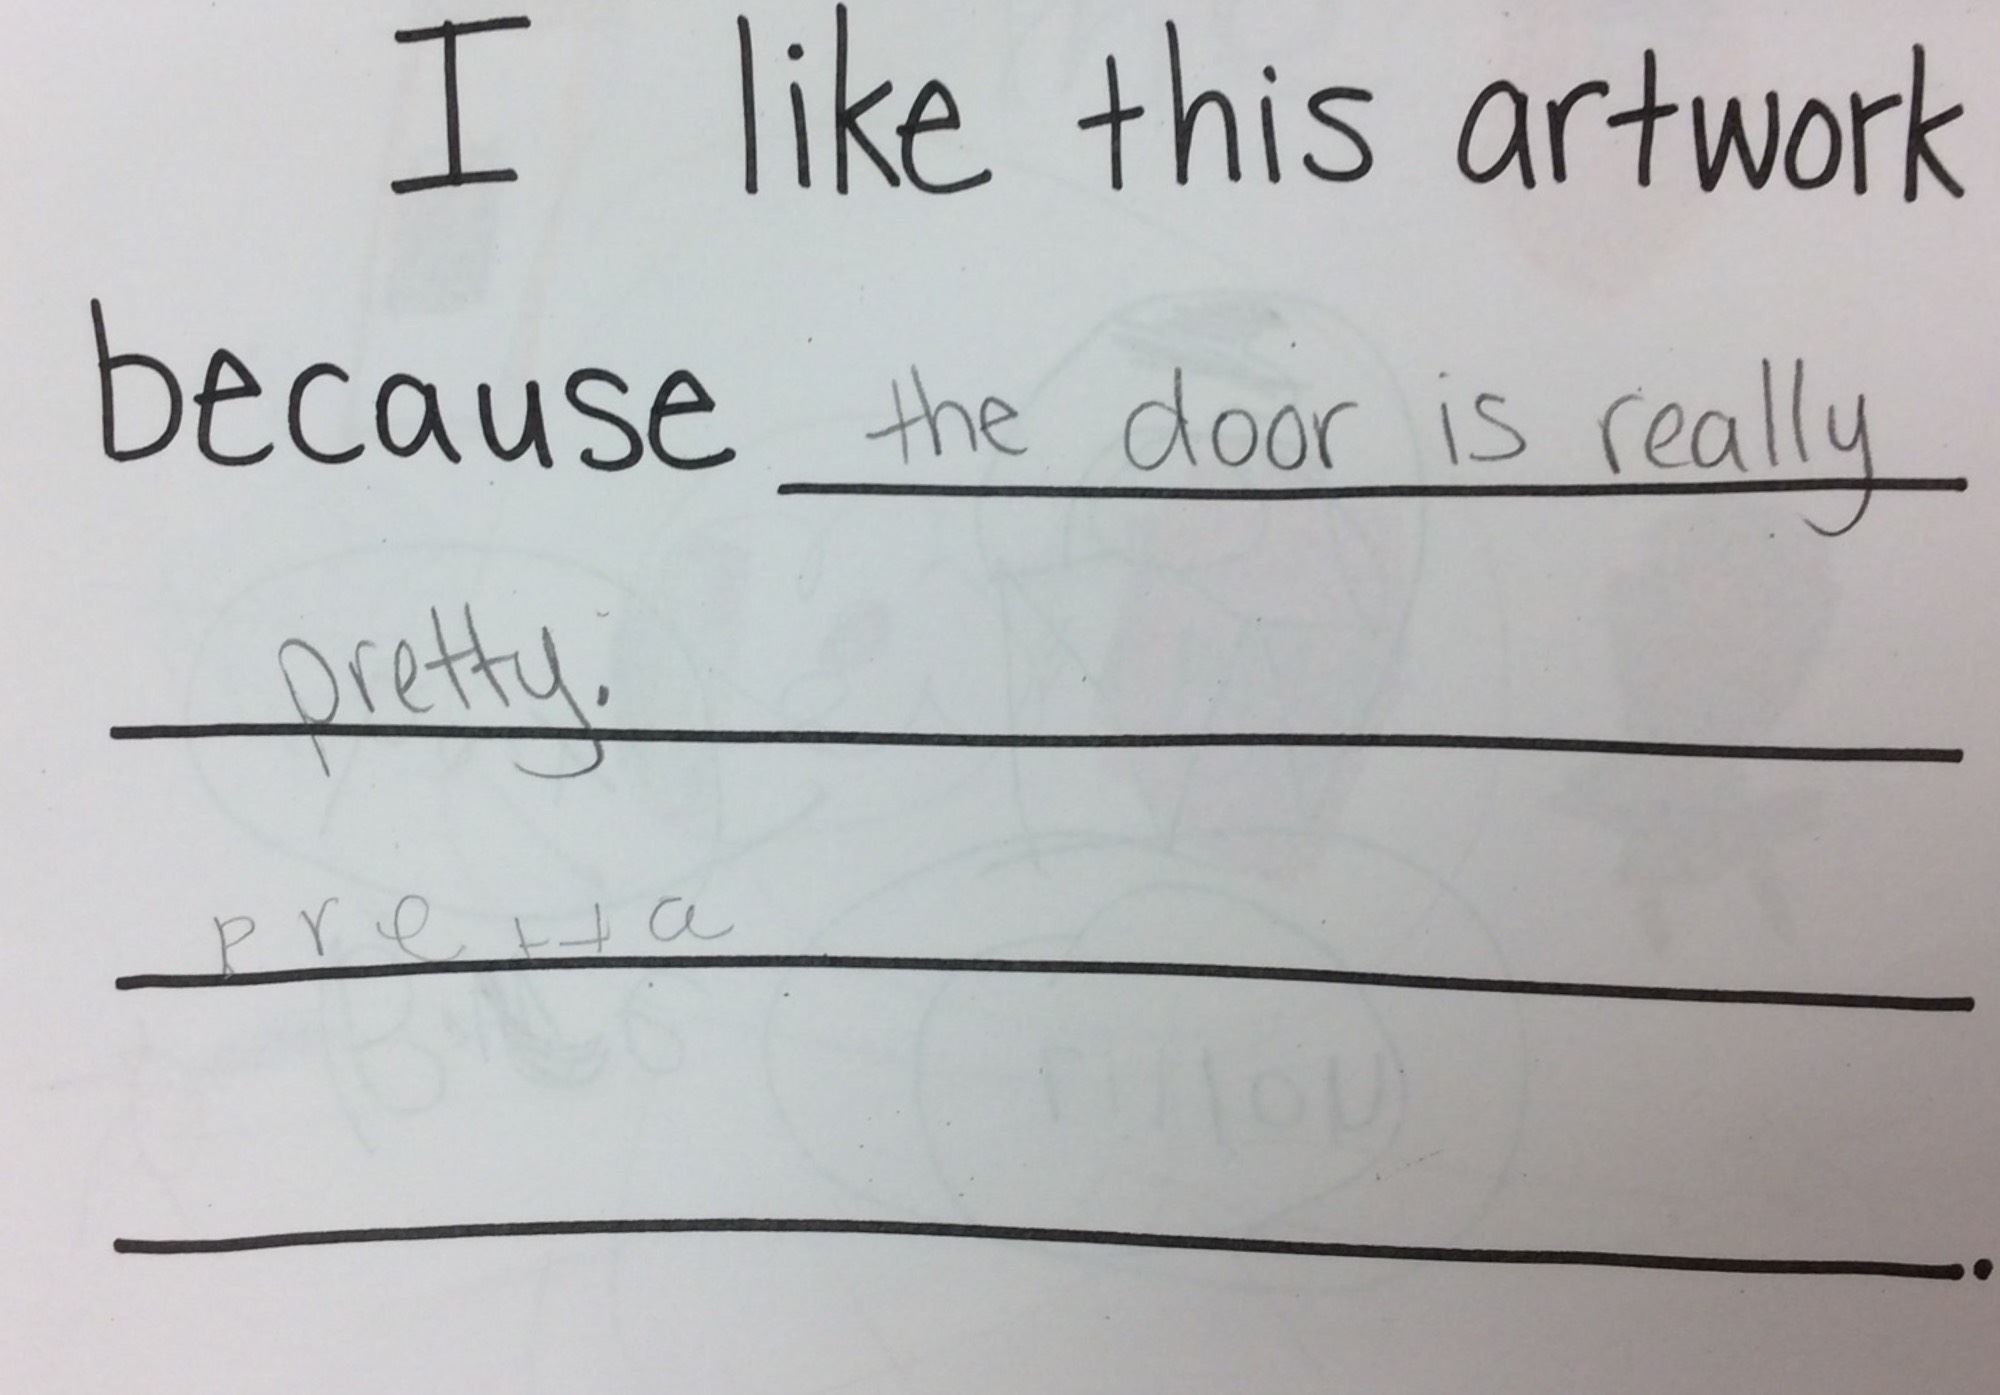 I like this artwork
because the door is really
pretty.
pretta